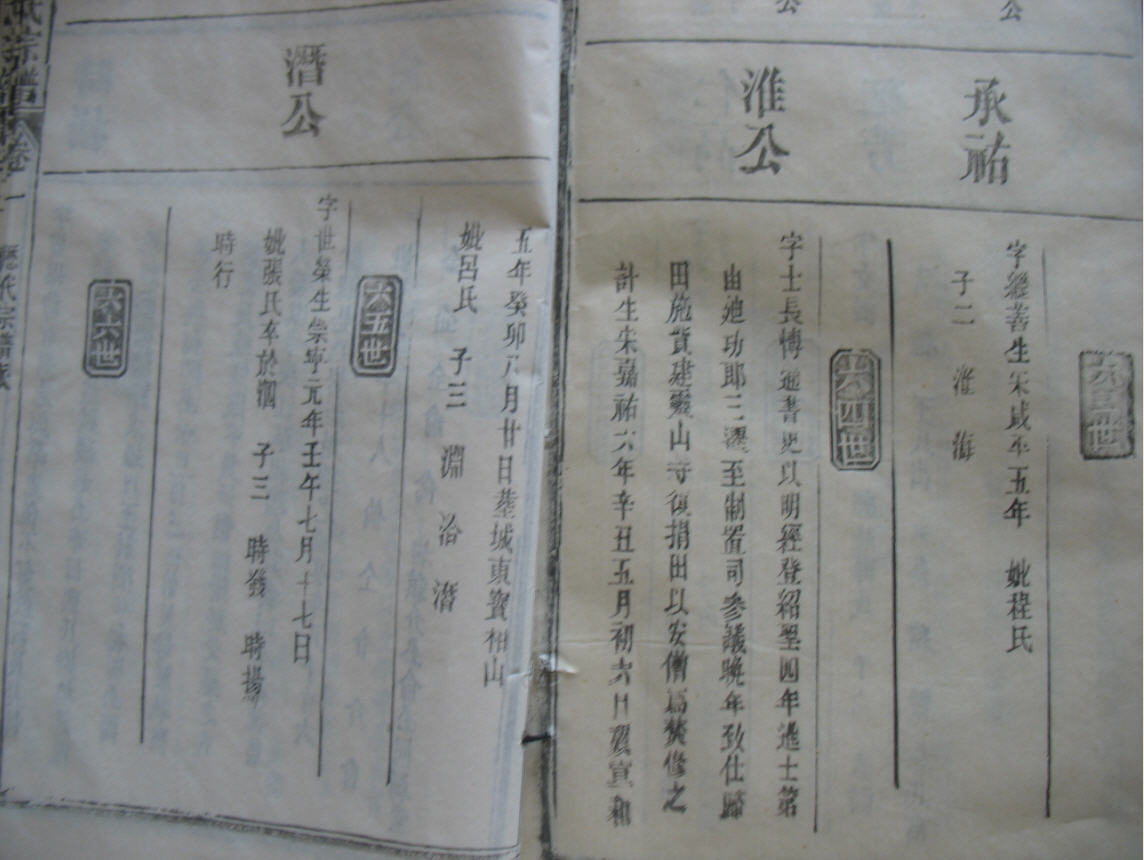 公
公
六三世
承祐
字繼善生宋咸平五年 妣程氏
子二 淮 海
六四世
淮公
字士長博通書史以明經登紹聖四年進士第
由迪功郎三遷至制置司參議晚年致仕歸
田施貲建靈山寺復捐田以安僧爲焚修之
計生宋嘉祐六年辛丑五月初六日歿宣和
五年癸卯六月廿日塟城東寶相山
妣呂氏 子三 淵 洽 潛
六五世
潛公
字世榮生崇寧元年壬午七月十七日
妣張氏卒於泗 子三 時發 時揚
時行
六六世
氏宗譜 卷一